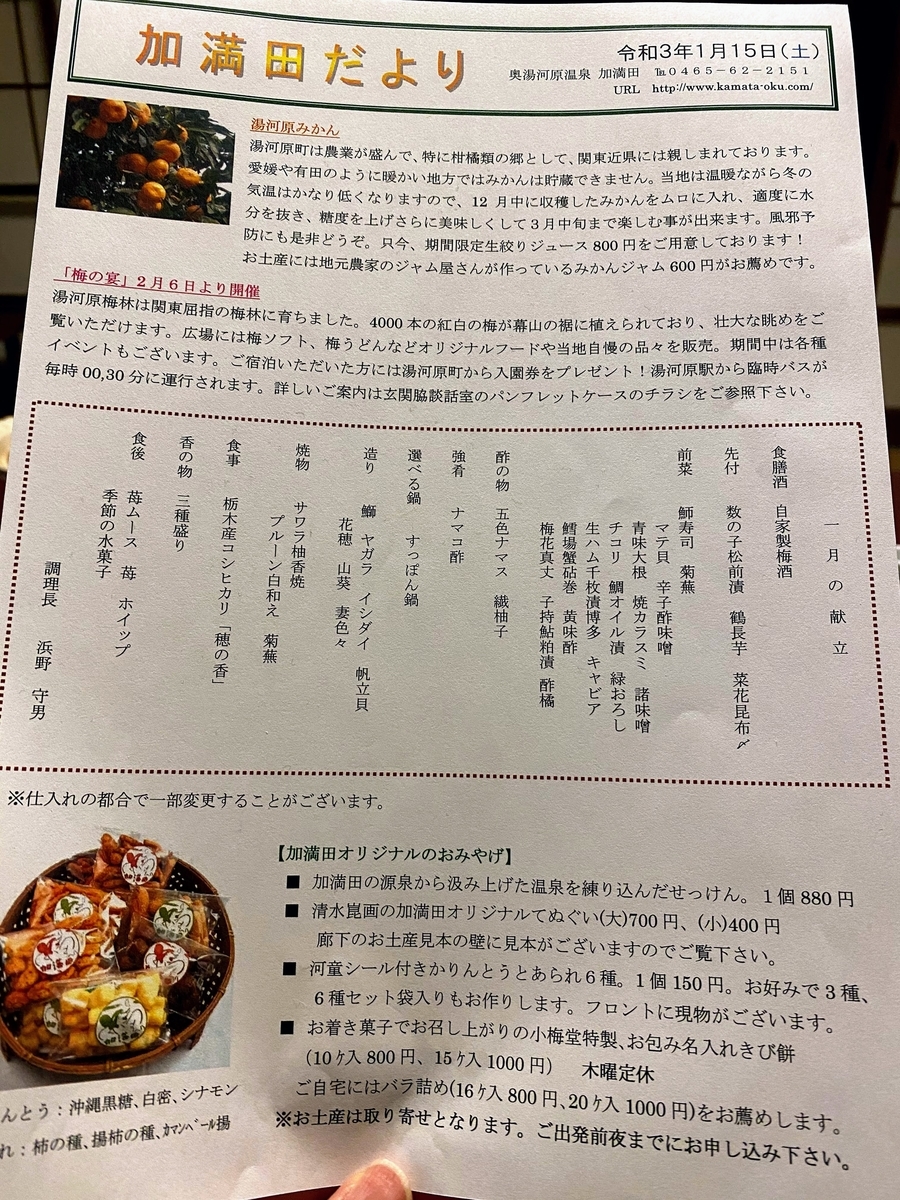 加満田だより
令和3年1月15日(土)
奥湯河原温泉 加満田 ℡0465-62-2151
URL http://www.kamata-oku.com/
湯河原みかん
湯河原町は農業が盛んで、特に柑橘類の郷として、関東近県には親しまれております。
愛媛や有田のように暖かい地方ではみかんは貯蔵できません。当地は温暖ながら冬の
気温はかなり低くなりますので、12 月中に収穫したみかんをムロに入れ、適度に水
分を抜き、糖度を上げさらに美味しくして3月中旬まで楽しむ事が出来ます。風邪予
防にも是非どうぞ。只今、期間限定生絞りジュース 800 円をご用意しております!
お土産には地元農家のジャム屋さんが作っているみかんジャム 600 円がお薦めです。
「梅の宴」2月6日より開催
湯河原梅林は関東屈指の梅林に育ちました。4000 本の紅白の梅が幕山の裾に植えられており、壮大な眺めをご
覧いただけます。広場には梅ソフト、梅うどんなどオリジナルフードや当地自慢の品々を販売。期間中は各種
イベントもございます。ご宿泊いただいた方には湯河原町から入園券をプレゼント!湯河原駅から臨時バスが
毎時 00,30 分に運行されます。詳しいご案内は玄関脇談話室のパンフレットケースのチラシをご参照下さい。
一月の献立
食膳酒 自家製梅酒
先付 数の子松前漬 鶴長芋 菜花昆布〆
前菜 鰤寿司 菊蕪
マテ貝 辛子酢味噌
青味大根 焼カラスミ 諸味噌
チコリ 鯛オイル漬 緑おろし
生ハム千枚漬博多 キャビア
鱈場蟹砧巻 黄味酢
梅花真丈 子持鮎粕漬 酢橘
酢の物 五色ナマス 繊柚子
強肴 ナマコ酢
選べる鍋 すっぽん鍋
造り 鰤 ヤガラ イシダイ 帆立貝
花穂 山葵 妻色々
焼物 サワラ柚香焼
プルーン白和え 菊蕪
食事 栃木産コシヒカリ「穂の香」
香の物 三種盛り
食後 苺ムース 苺 ホイップ
季節の水菓子
調理長 浜野 守男
※仕入れの都合で一部変更することがございます。
【加満田オリジナルのおみやげ】
■ 加満田の源泉から汲み上げた温泉を練り込んだせっけん。1個 880 円
■ 清水崑画の加満田オリジナルてぬぐい(大)700 円、(小)400 円
廊下のお土産見本の壁に見本がございますのでご覧下さい。
■ 河童シール付きかりんとうとあられ6種。1個 150 円。お好みで3種、
6種セット袋入りもお作りします。フロントに現物がございます。
■ お着き菓子でお召し上がりの小梅堂特製、お包み名入れきび餅
(10ヶ入 800 円、15ヶ入 1000 円) 木曜定休
ご自宅にはバラ詰め(16ヶ入 800 円、20ヶ入 1000 円)をお薦めします。
※お土産は取り寄せとなります。ご出発前夜までにお申し込み下さい。
んとう:沖縄黒糖、白密、シナモン
れ:柿の種、揚柿の種、ｶﾏﾝﾍﾞｰﾙ揚